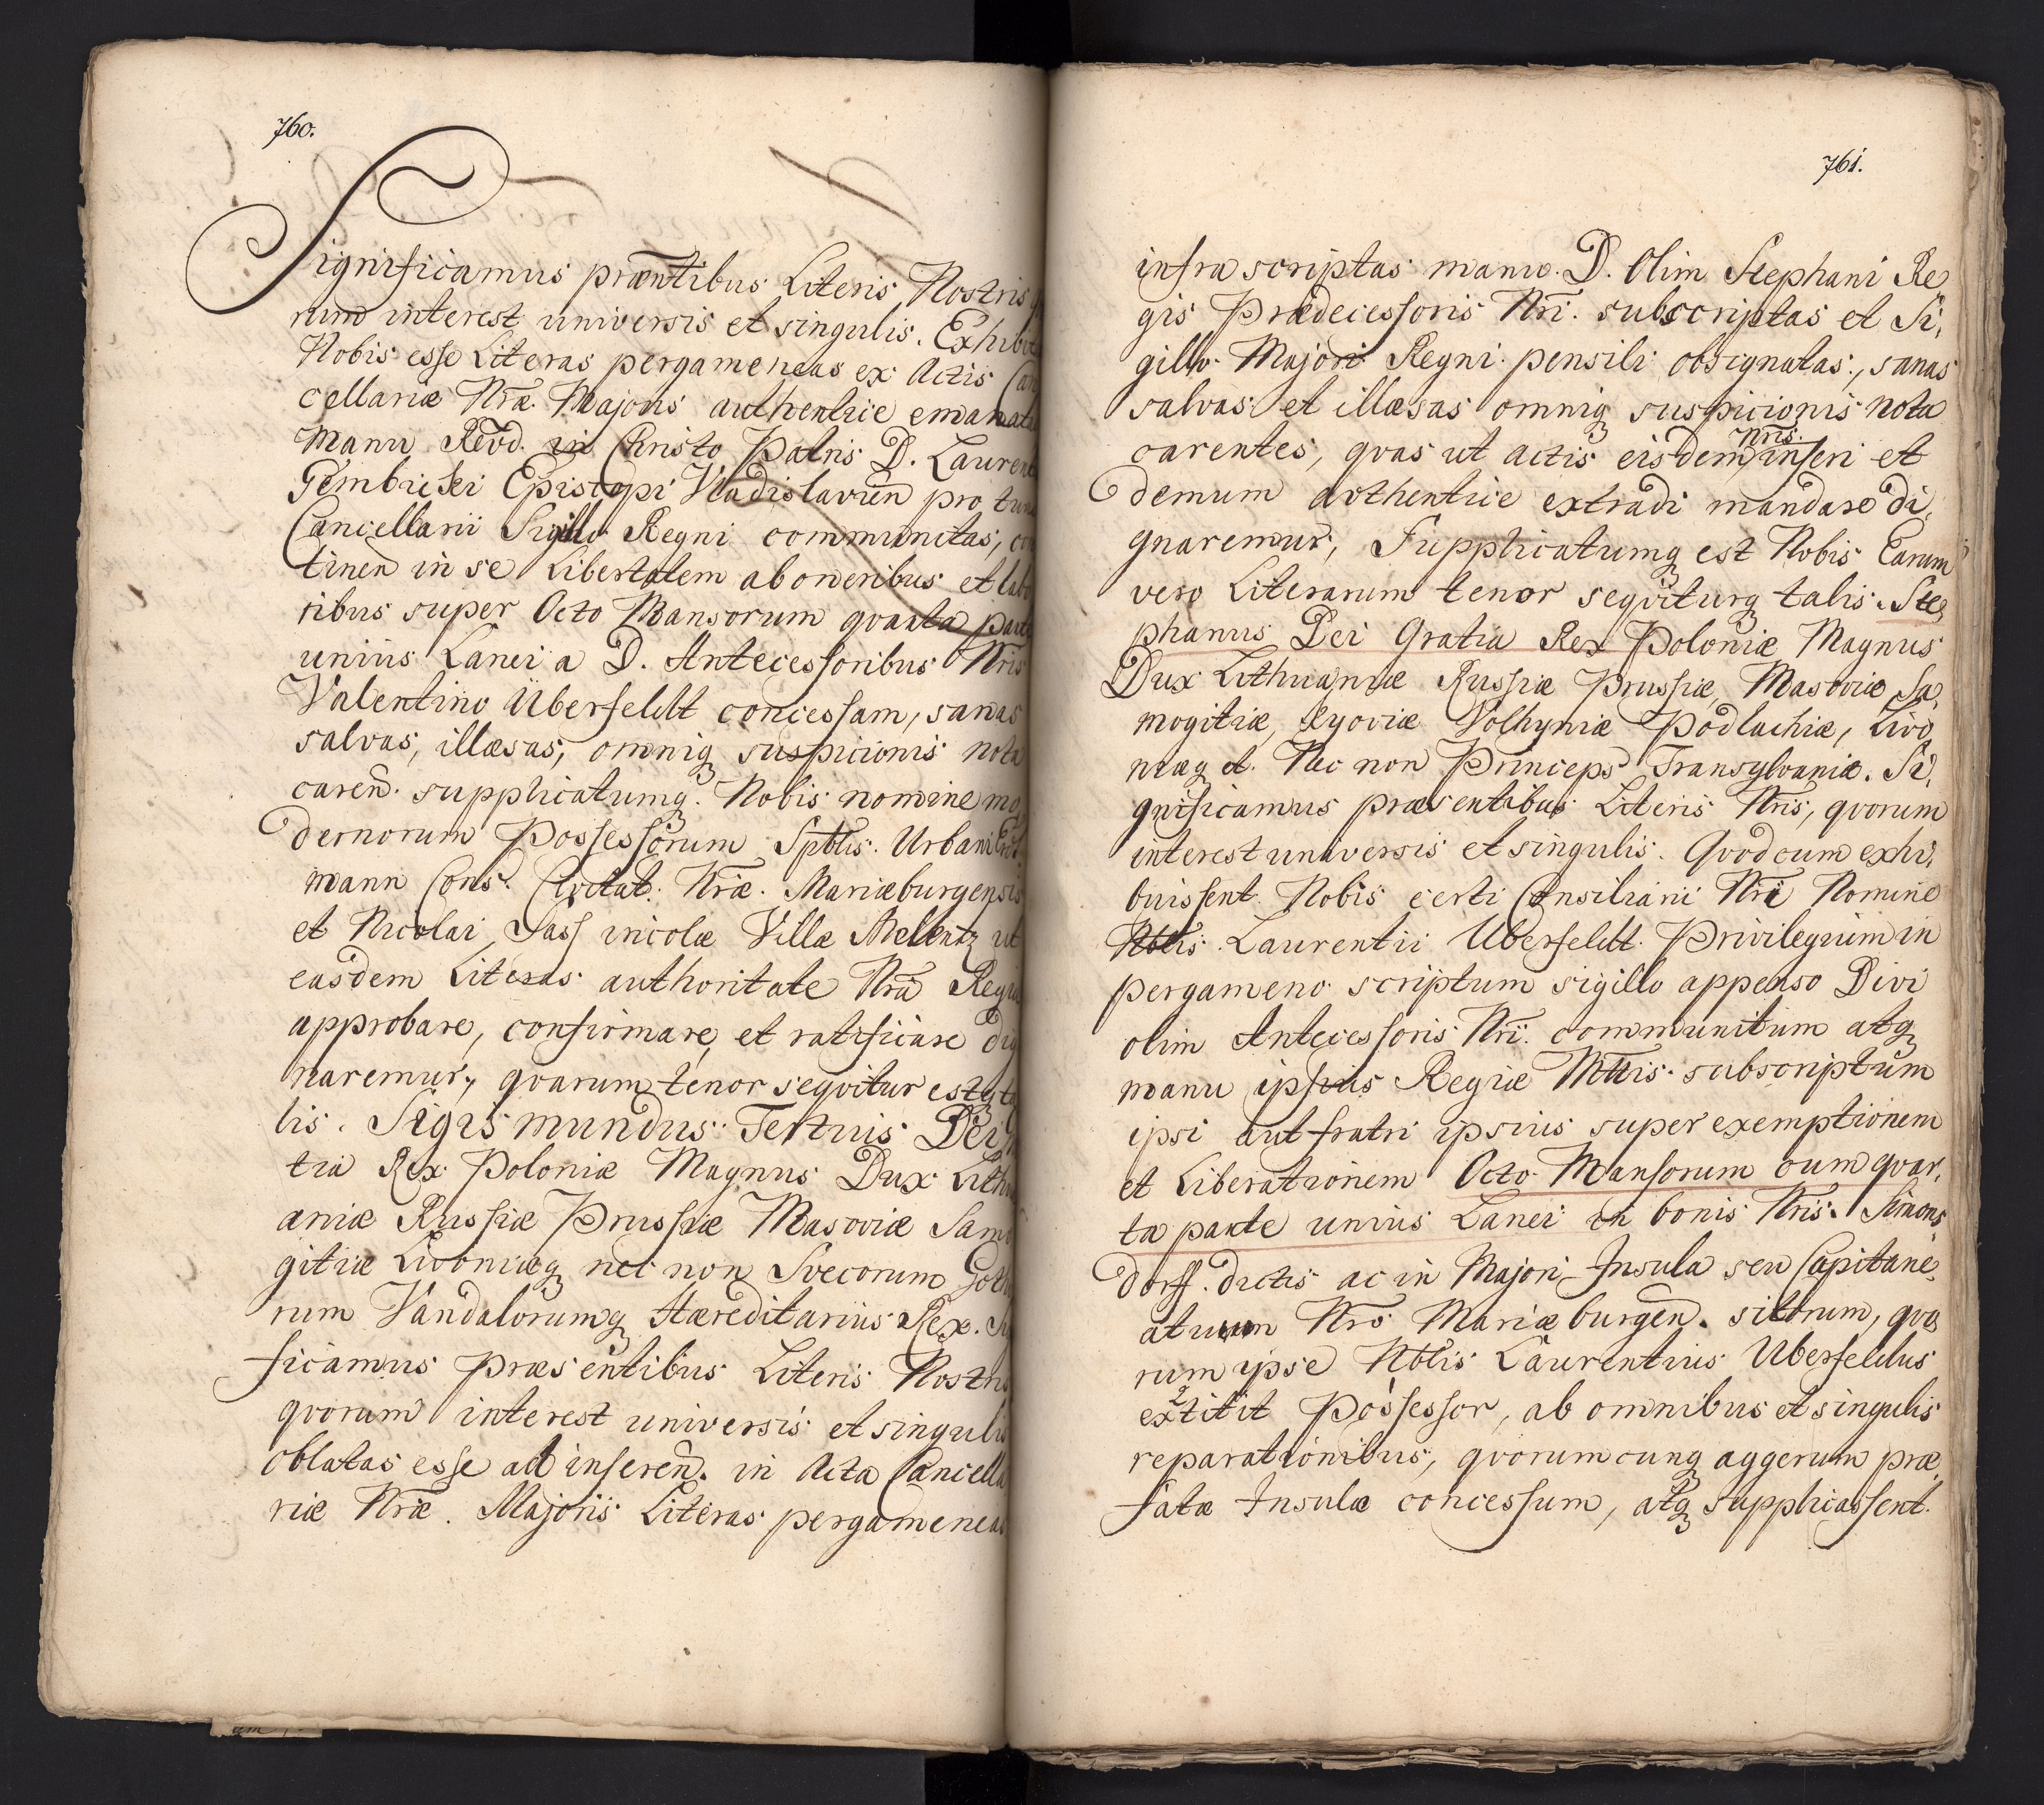 760.
Significamus præntibus Literis Nostris
rum interest universis et singulis. Exhib
Nobis esse Literas pergameneas ex Actis Can
cellariæ Nræ. Majoris authentice emanat
Manu Revd. in Christo Patris D. Laurent
Gembicki Episcopi Vladislavien pro tunc
Cancellarii Sigillo Regni communitas, con
tinen in se Libertatem ab oneribus et labo
ribus super Octo Mansorum quarta parte
unius Lanei a D. Antecessoribus Nris
Valentino Uberfeldt concessam, sanas
salvas, illæsas, omniq suspicionis nota
caren. supplicatumq. Nobis nomine mo
dernorum Possessorum Spblis. Urbani
mann Cons. Civitat. Nræ. Mariæburgensis
et Nicolai Sass incolæ Villæ Mellentz ut
easdem Literas authoritate Nra Regia
approbare, confirmare, et ratificare dig
naremur, qvarum tenor seqvitur estq ta
lis. Sigismundus Tertuis Dei
tia Rex Poloniæ Magnus Dux Lithu
aniæ Russiæ Prussiæ Masoviæ Samo
gitiæ Livoniæq nec non Svecorum Gotho
rum Vandalorumq Hæreditarius Rex. Si
ficamus præsentibus Literis Nostris
qvorum interest universis et singulis
oblatas esse ad inseren. in Acta Cancella
riæ Nræ. Majoris Literas pergameneas
761.
infra scriptas manu. D. Olim Stephani Re
gis Prædecessoris Nri. subscriptas et Si,
gillo Majori Regni pensili obsignatas, sanas
salvas et illæsas omniq suspicionis nota
carentes, qvas ut actis eisdem nris. inseri et
demum authentice extradi mandare di,
gnaremur, Supplicatumq est Nobis Earum
vero Literarum tenor seqviturq talis. Ste,
phanus Dei Gratia Rex Poloniæ Magnus
Dux Lithuaniæ Russiæ Prussiæ, Masoviæ Sa,
mogitiæ, Kyoviæ Volhyniæ Podlachiæ, Livo,
niæq et. Nec non Princeps Transylvaniæ. Si,
gnificamus præsentibus Literis Nris, qvorum
interest universis et singulis. Qvod cum exhi,
buissent Nobis certi Consiliarii Nri Nomine
Nblis. Laurentii Uberfeldt. Privilegium in
pergameno scriptum sigillo appenso Divi
olim Antecessoris Nri. communitum atq
manu ipsius Regiæ Mttis. subscriptum
ipsi aut fratri ipsius super exemptionem
et Liberationem Octo Mansorum cum qvar,
ta parte unius Lanei in bonis Nris. Simons
dorff. dictis ac in Majori Insula seu Capitane,
atuum Nro Mariæburgen. sitorum, qvo
rum ipse Nblis Laurentius Uberfeldus
extitit Possessor, ab omnibus et singulis
reparationibus, qvorumcunq aggerum præ
fatæ Insulæ concessum, atq supplicassent.